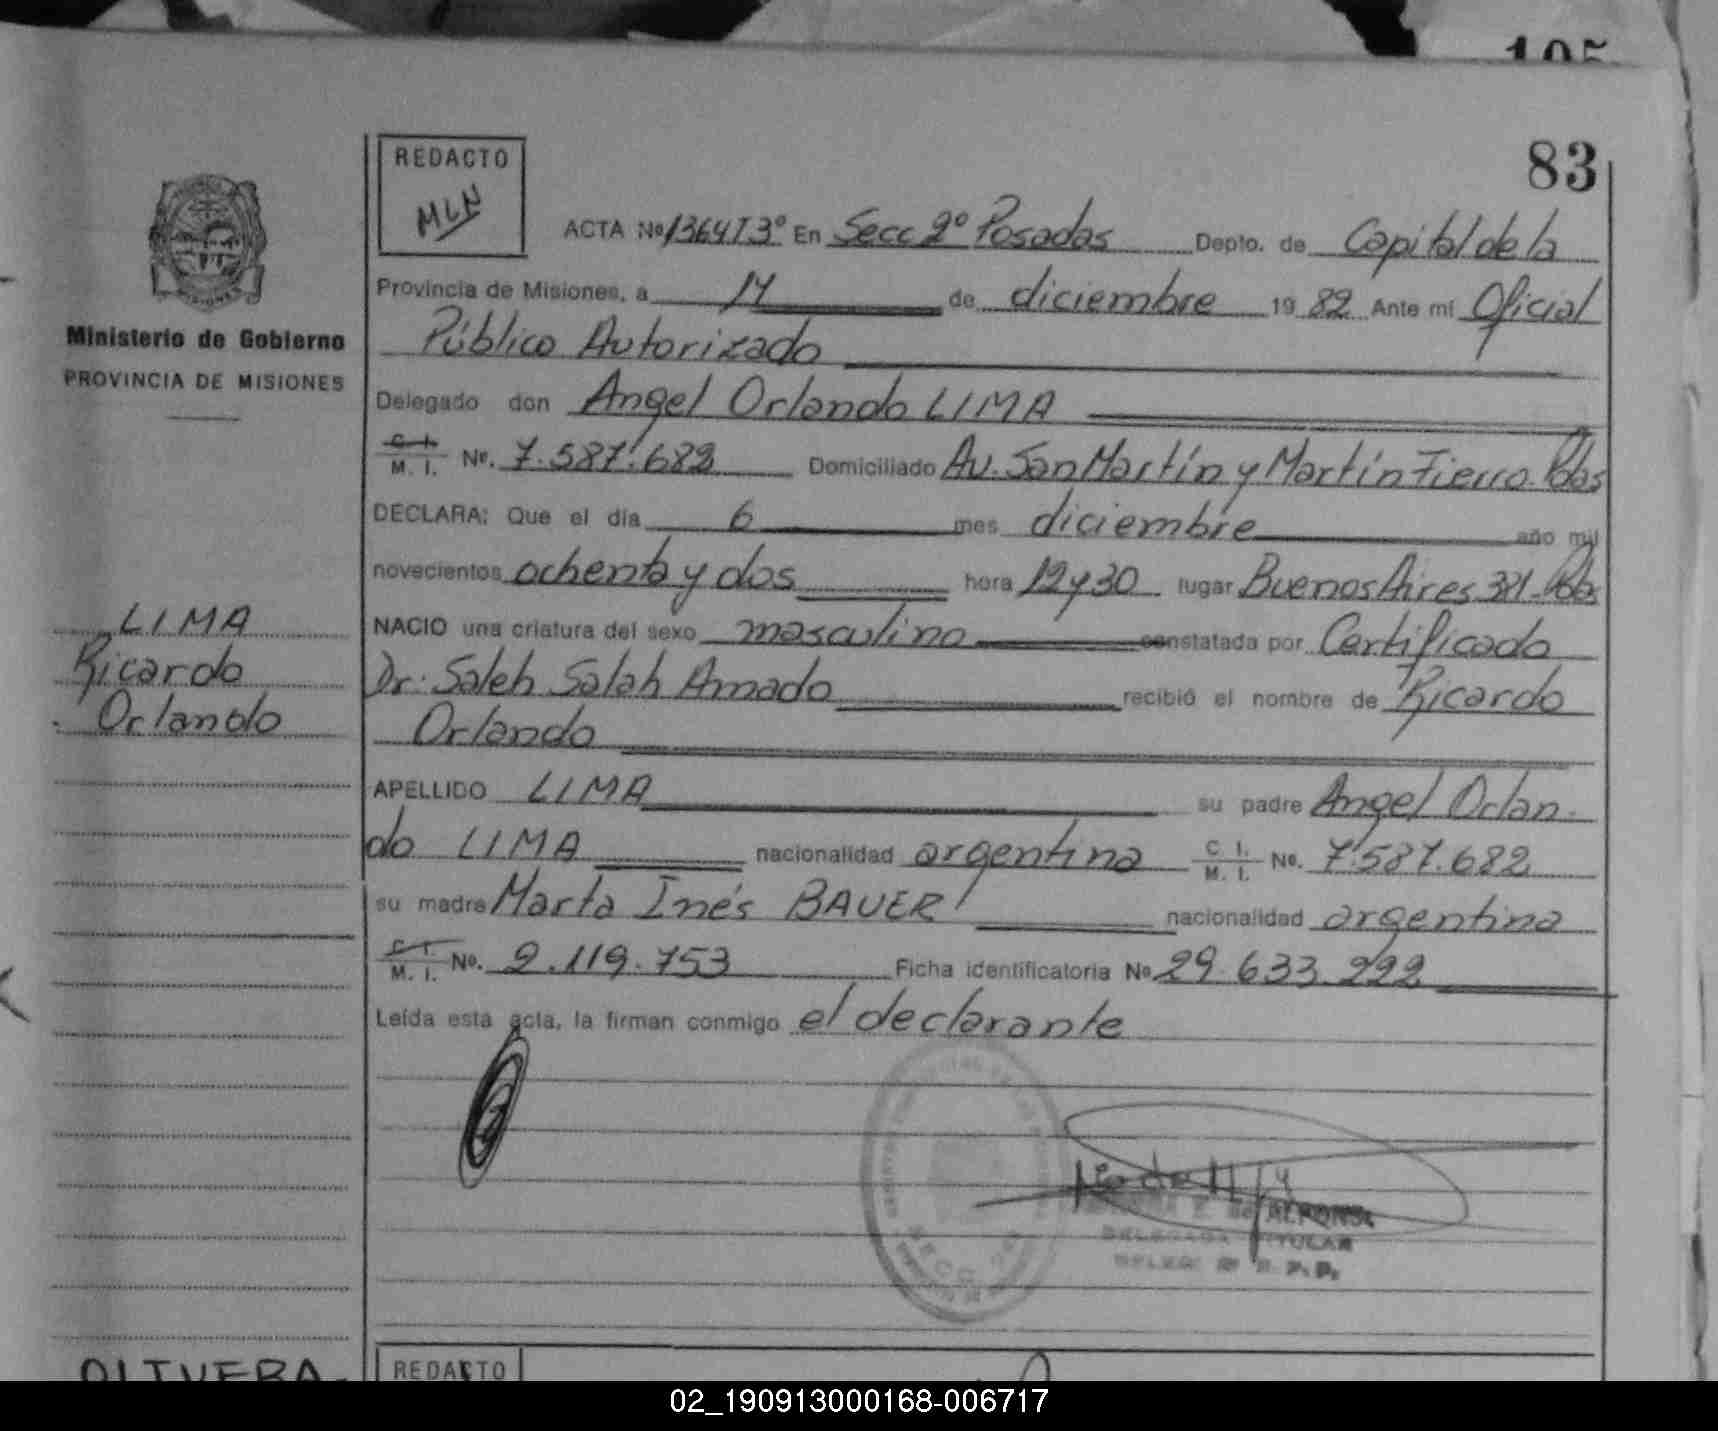 105
83
REDACTO
MLN
ACTA No 1364T3º En Secc 2º Posadas Depto. de Capital de la
Provincia de Misiones, a 14 de diciembre 1982 Ante mi Oficial
Público Autorizado
Delegado don Angel Orlando LIMA
C. I. M. I. No. 7.587.682 Domiciliado Av. San Martín y Martín Fierro. Pdas
DECLARA: Que el día 6 mes diciembre año mil
novecientos ochenta y dos hora 12 y 30 lugar Buenos Aires 381-Pdas
NACIO una criatura del sexo masculino constatada por Certificado
Dr. Saleh Salah Amado recibió el nombre de Ricardo
Orlando
APELLIDO LIMA su padre Angel Orlan-
do LIMA nacionalidad argentina C. I. M. I. No. 7.587.682
su madre Marta Inés BAUER nacionalidad argentina
C. I. M. I. No. 2.119.753 Ficha identificatoria No 29.633.222
Leída esta acta, la firman conmigo el declarante
ALFONSO
DELEGADA TITULAR
Ministerio de Gobierno
PROVINCIA DE MISIONES
LIMA
Ricardo
Orlando
OLIVERA
REDACTO
02_190913000168-006717